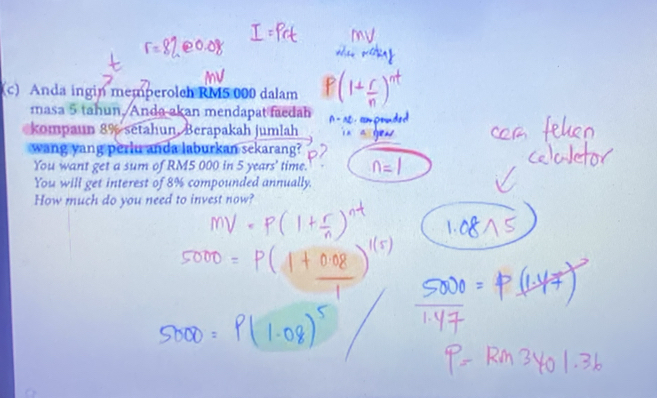 I = Prt
MV
r = 8% @ 0.08
when making
t
MV
P(1+r/n)^nt
(c) Anda ingin memperoleh RM5 000 dalam
masa 5 tahun. Anda akan mendapat faedah
kompaun 8% setahun. Berapakah jumlah
wang yang perlu anda laburkan sekarang? P?
You want get a sum of RM5 000 in 5 years' time.
You will get interest of 8% compounded annually.
How much do you need to invest now?
n - no. compounded
in a year
n=1
cara tekan
calculator
1.08^5
MV = P(1+r/n)^nt
5000 = P(1+0.08/1)^1(5)
5000 = P(1.08)^5
5000 = P(1.47)
1.47
P = Rm 3401.36